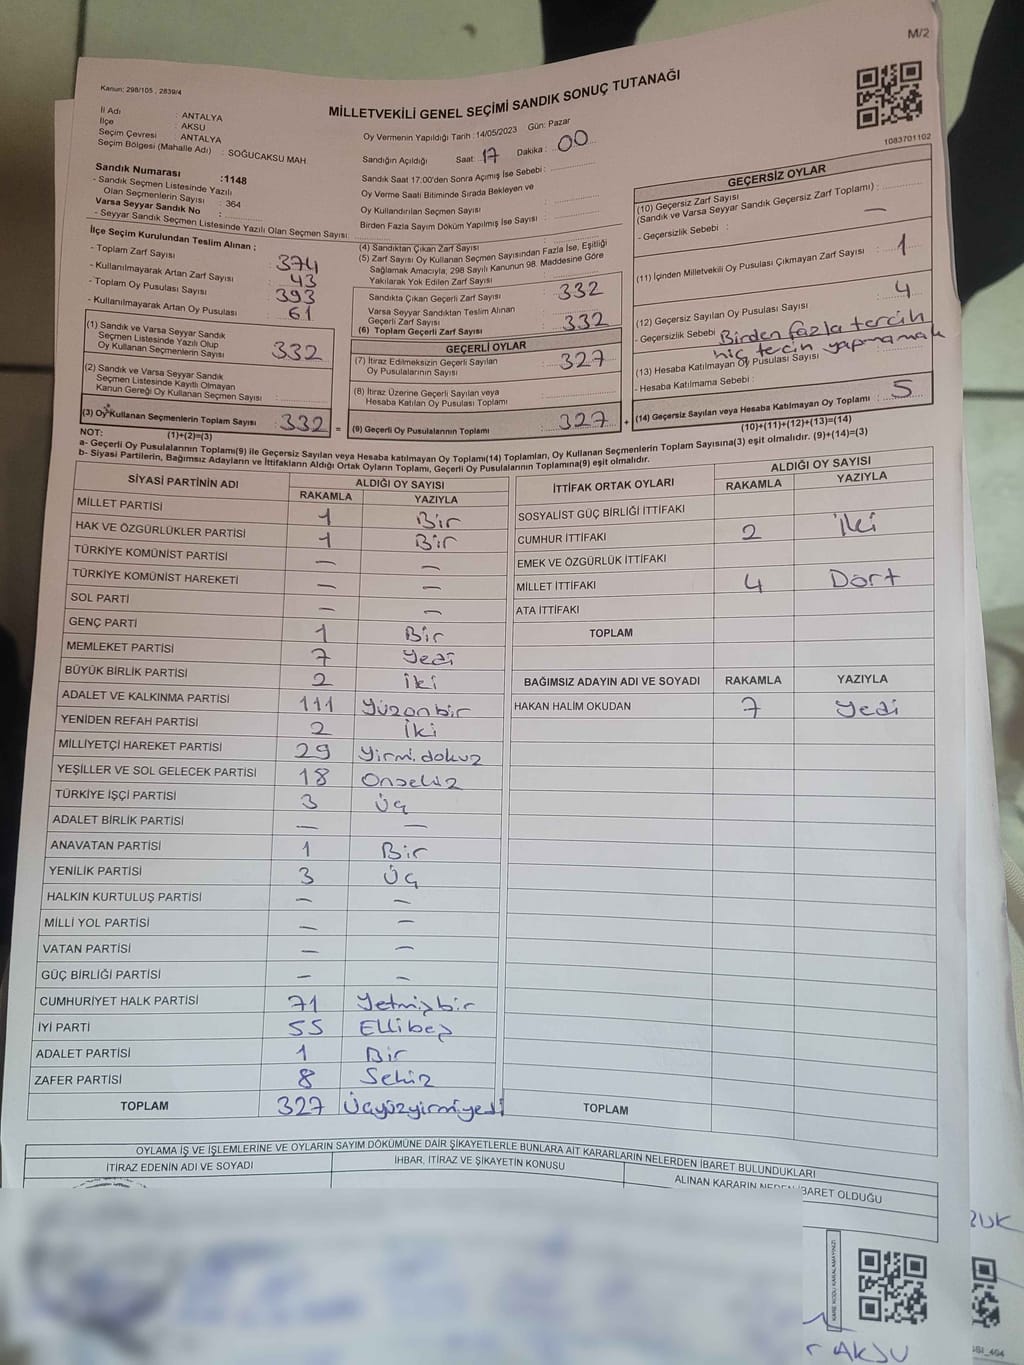 M/2
Kanun: 298/105 , 2839/4
MİLLETVEKİLİ GENEL SEÇİMİ SANDIK SONUÇ TUTANAĞI
1083701102
İl Adı : ANTALYA
İlçe : AKSU
Seçim Çevresi : ANTALYA
Seçim Bölgesi (Mahalle Adı) : SOĞUCAKSU MAH.
Oy Vermenin Yapıldığı Tarih : 14/05/2023 Gün: Pazar
Sandığın Açıldığı Saat: 17 Dakika : 00
Sandık Saat 17.00'den Sonra Açımış İse Sebebi :
Oy Verme Saati Bitiminde Sırada Bekleyen ve
Oy Kullandırılan Seçmen Sayısı
Birden Fazla Sayım Döküm Yapılmış İse Sayısı :
Sandık Numarası :1148
- Sandık Seçmen Listesinde Yazılı
Olan Seçmenlerin Sayısı : 364
Varsa Seyyar Sandık No :
- Seyyar Sandık Seçmen Listesinde Yazılı Olan Seçmen Sayısı:
İlçe Seçim Kurulundan Teslim Alınan ;
- Toplam Zarf Sayısı : 374
- Kullanılmayarak Artan Zarf Sayısı : 43
- Toplam Oy Pusulası Sayısı : 393
- Kullanılmayarak Artan Oy Pusulası : 61
(1) Sandık ve Varsa Seyyar Sandık
Seçmen Listesinde Yazılı Olup
Oy Kullanan Seçmenlerin Sayısı : 332
(2) Sandık ve Varsa Seyyar Sandık
Seçmen Listesinde Kayıtlı Olmayan
Kanun Gereği Oy Kullanan Seçmen Sayısı :
(3) Oy Kullanan Seçmenlerin Toplam Sayısı : 332 =
(4) Sandıktan Çıkan Zarf Sayısı
(5) Zarf Sayısı Oy Kullanan Seçmen Sayısından Fazla İse, Eşitliği
Sağlamak Amacıyla, 298 Sayılı Kanunun 98. Maddesine Göre
Yakılarak Yok Edilen Zarf Sayısı
Sandıkta Çıkan Geçerli Zarf Sayısı : 332
Varsa Seyyar Sandıktan Teslim Alınan
Geçerli Zarf Sayısı
(6) Toplam Geçerli Zarf Sayısı : 332
GEÇERLİ OYLAR
(7) İtiraz Edilmeksizin Geçerli Sayılan
Oy Pusulalarının Sayısı : 327
(8) İtiraz Üzerine Geçerli Sayılan veya
Hesaba Katılan Oy Pusulası Toplamı
(9) Geçerli Oy Pusulalarının Toplamı : 327 +
GEÇERSİZ OYLAR
(10) Geçersiz Zarf Sayısı
(Sandık ve Varsa Seyyar Sandık Geçersiz Zarf Toplamı) :
- Geçersizlik Sebebi : —
(11) İçinden Milletvekili Oy Pusulası Çıkmayan Zarf Sayısı : 1
(12) Geçersiz Sayılan Oy Pusulası Sayısı : 4
- Geçersizlik Sebebi : Birden fazla tercih
hiç tercih yapmamak
(13) Hesaba Katılmayan Oy Pusulası Sayısı :
- Hesaba Katılmama Sebebi :
(14) Geçersiz Sayılan veya Hesaba Katılmayan Oy Toplamı : 5
(10)+(11)+(12)+(13)=(14)
NOT: (1)+(2)=(3)
a- Geçerli Oy Pusulalarının Toplamı(9) ile Geçersiz Sayılan veya Hesaba katılmayan Oy Toplamı(14) Toplamları, Oy Kullanan Seçmenlerin Toplam Sayısına(3) eşit olmalıdır. (9)+(14)=(3)
b- Siyasi Partilerin, Bağımsız Adayların ve İttifakların Aldığı Ortak Oyların Toplamı, Geçerli Oy Pusulalarının Toplamına(9) eşit olmalıdır.
SİYASİ PARTİNİN ADI ALDIĞI OY SAYISI
RAKAMLA YAZIYLA
MİLLET PARTİSİ 1 Bir
HAK VE ÖZGÜRLÜKLER PARTİSİ 1 Bir
TÜRKİYE KOMÜNİST PARTİSİ — —
TÜRKİYE KOMÜNİST HAREKETİ — —
SOL PARTİ — —
GENÇ PARTİ 1 Bir
MEMLEKET PARTİSİ 7 Yedi
BÜYÜK BİRLİK PARTİSİ 2 İki
ADALET VE KALKINMA PARTİSİ 111 Yüzonbir
YENİDEN REFAH PARTİSİ 2 İki
MİLLİYETÇİ HAREKET PARTİSİ 29 Yirmi dokuz
YEŞİLLER VE SOL GELECEK PARTİSİ 18 Onsekiz
TÜRKİYE İŞÇİ PARTİSİ 3 Üç
ADALET BİRLİK PARTİSİ — —
ANAVATAN PARTİSİ 1 Bir
YENİLİK PARTİSİ 3 Üç
HALKIN KURTULUŞ PARTİSİ — —
MİLLİ YOL PARTİSİ — —
VATAN PARTİSİ — —
GÜÇ BİRLİĞİ PARTİSİ — —
CUMHURİYET HALK PARTİSİ 71 Yetmişbir
İYİ PARTİ 55 Ellibeş
ADALET PARTİSİ 1 Bir
ZAFER PARTİSİ 8 Sekiz
TOPLAM 327 Üçyüzyirmiyedi
İTTİFAK ORTAK OYLARI ALDIĞI OY SAYISI
RAKAMLA YAZIYLA
SOSYALİST GÜÇ BİRLİĞİ İTTİFAKI
CUMHUR İTTİFAKI 2 İki
EMEK VE ÖZGÜRLÜK İTTİFAKI
MİLLET İTTİFAKI 4 Dört
ATA İTTİFAKI
TOPLAM
BAĞIMSIZ ADAYIN ADI VE SOYADI RAKAMLA YAZIYLA
HAKAN HALİM OKUDAN 7 Yedi
TOPLAM
OYLAMA İŞ VE İŞLEMLERİNE VE OYLARIN SAYIM DÖKÜMÜNE DAİR ŞİKAYETLERLE BUNLARA AİT KARARLARIN NELERDEN İBARET BULUNDUKLARI
İTİRAZ EDENİN ADI VE SOYADI İHBAR, İTİRAZ VE ŞİKAYETİN KONUSU ALINAN KARARIN NEDEN İBARET OLDUĞU
KARE KODU KARALAMAYINIZ!
AKSU